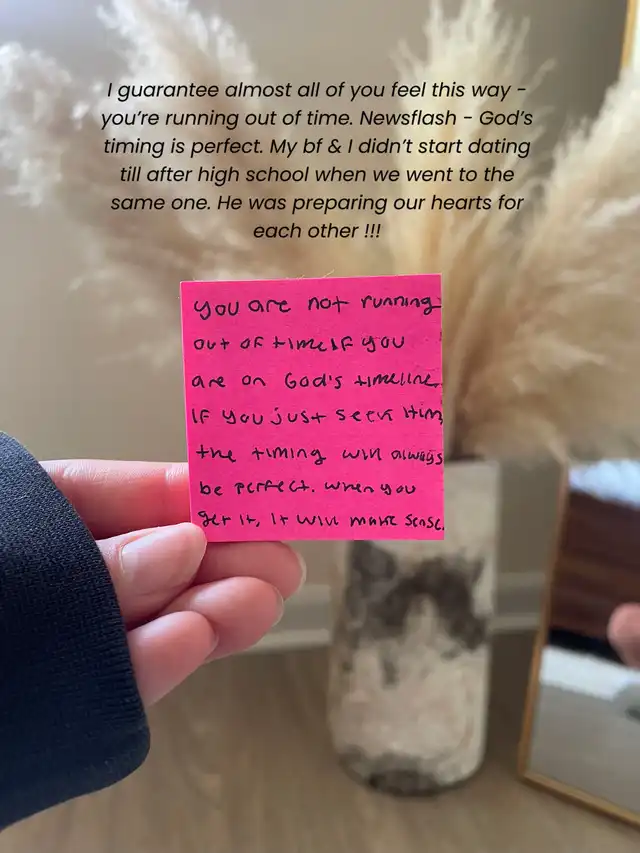 I guarantee almost all of you feel this way -
you're running out of time. Newsflash - God's
timing is perfect. My bf & I didn't start dating
till after high school when we went to the
same one. He was preparing our hearts for
each other !!!
you are not running
out of time if you
are on God's timeline.
If you just seek Him,
the timing will always
be perfect. when you
get it, it will make sense.